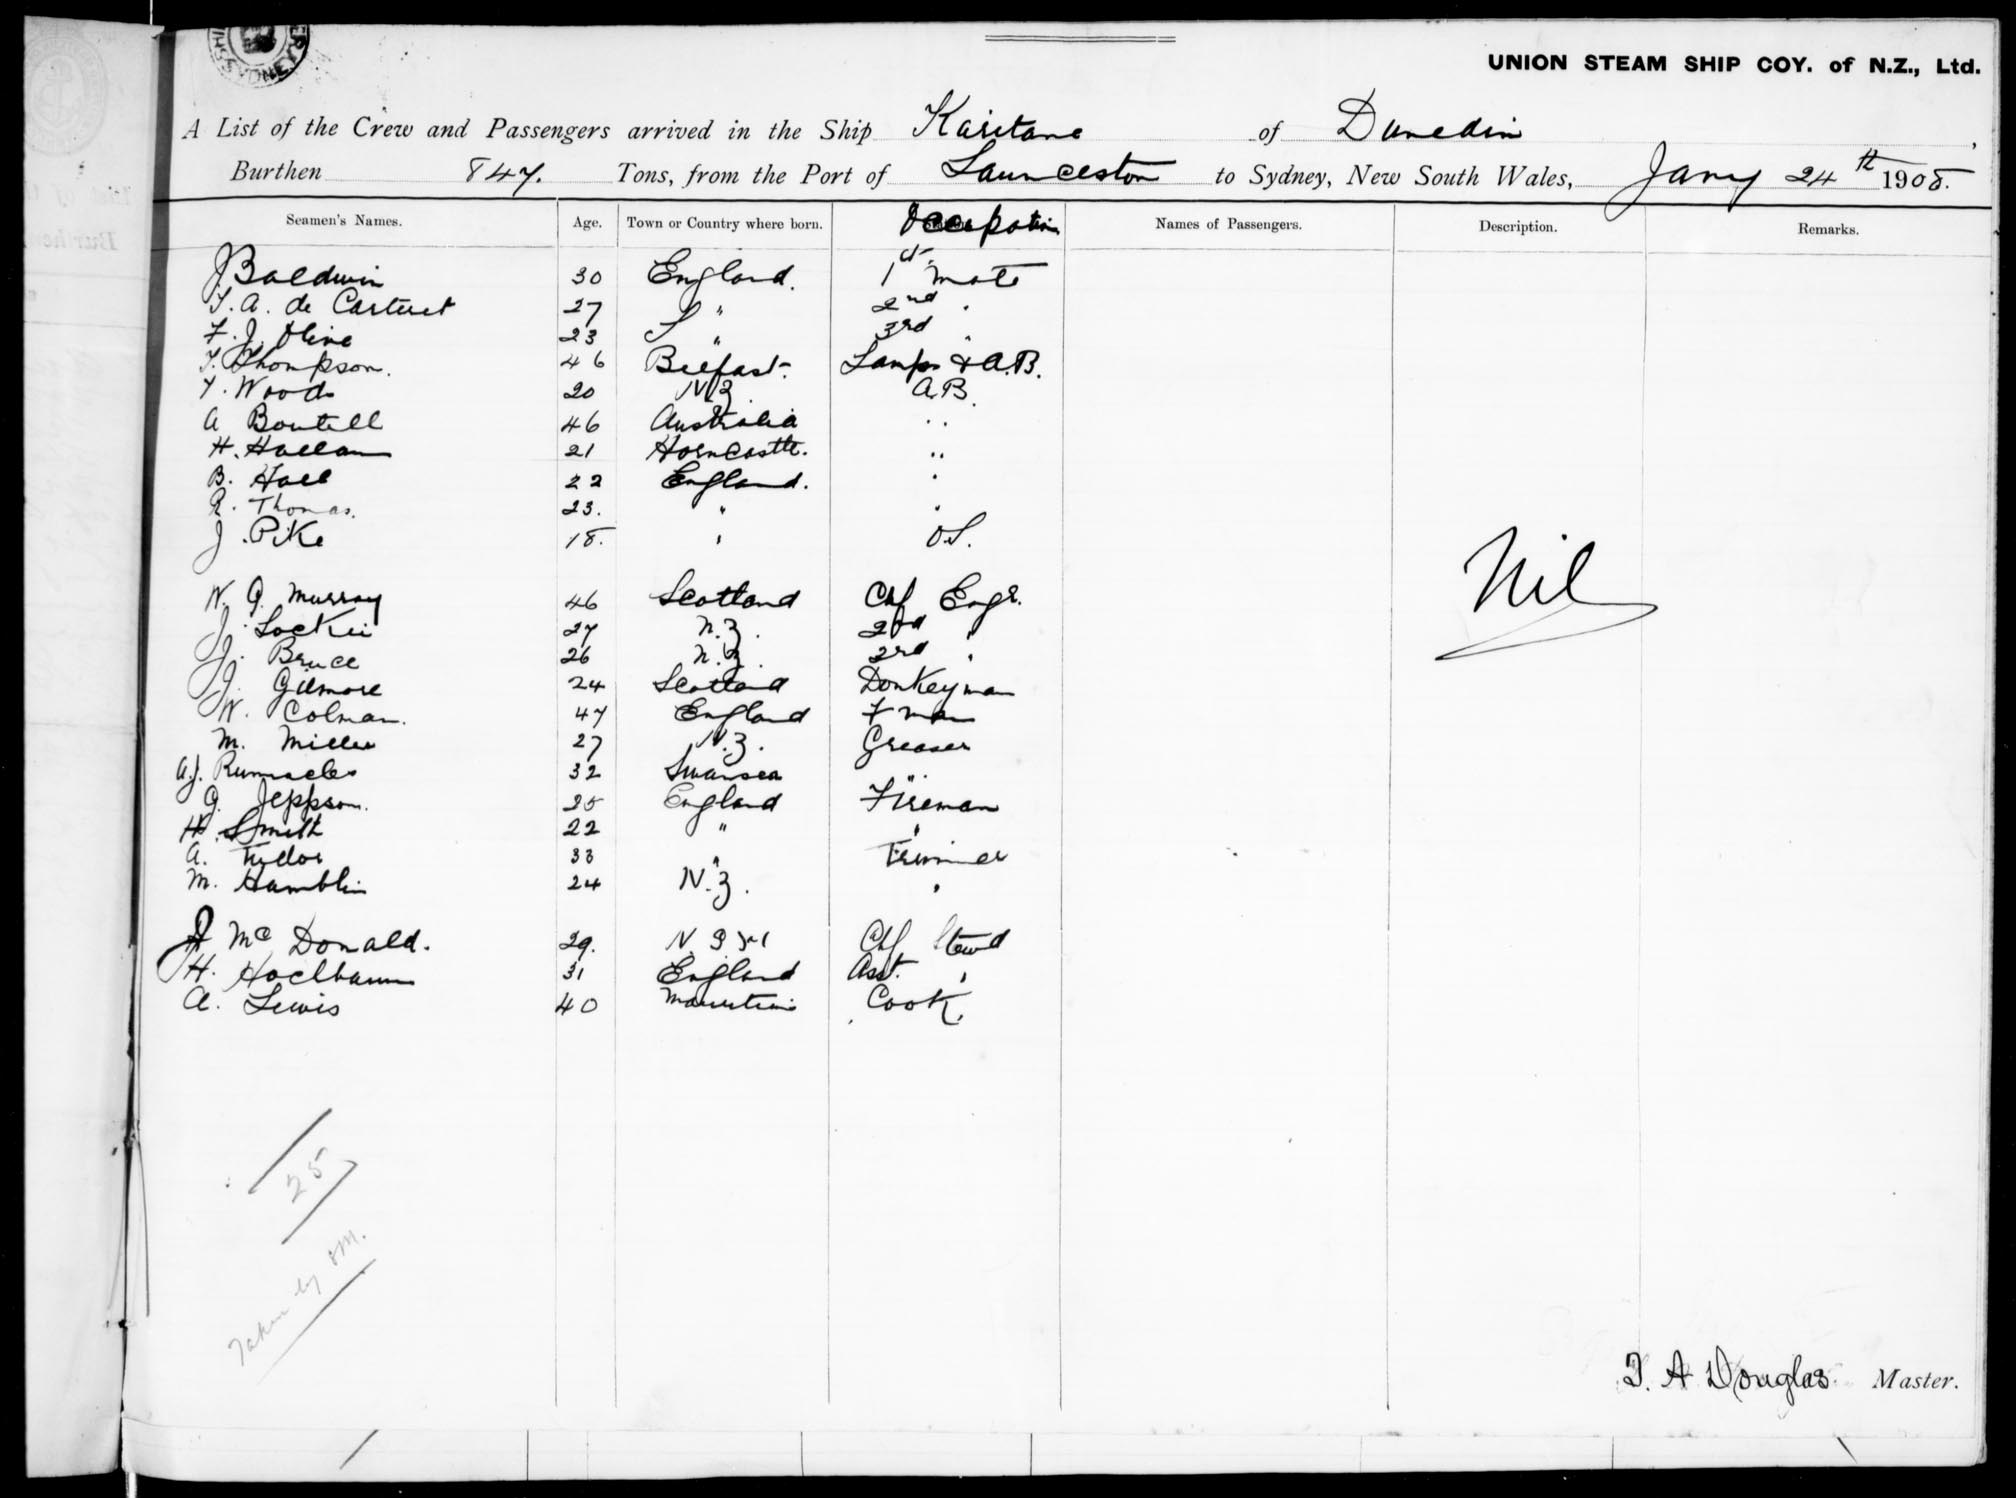 SYDNEY
UNION STEAM SHIP COY. of N.Z., Ltd.
A List of the Crew and Passengers arrived in the Ship Karitane of Dunedin,
Burthen 847. Tons, from the Port of Launceston to Sydney, New South Wales, Jany 24th 1908.
Seamen's Names. Age. Town or Country where born. Occupation Names of Passengers. Description. Remarks.
J Baldwin 30 England. 1st mate
T. A. de Carteret 27 " 2nd "
F. J. Olive 23 " 3rd "
T. Thompson. 46 Belfast. Lamps & A.B.
T. Woods 20 N Z. A.B.
A Boutell 46 Australia "
H. Hallam 21 Horncastle. "
B. Hall 22 England. "
R. Thomas. 23. " "
J. Pike 18. " O.S.
Nil
W. G. Murray 46 Scotland Chf Engr.
J. Lockie 27 N.Z. 2nd "
J. Bruce 26 N.Z. 3rd "
J. Gilmore 24 Scotland Donkeyman
W. Colman. 47 England F man
M. Miller 27 N.Z. Greaser
A.J. Runacles 32 Swansea "
G. Jeppson. 25 England Fireman
H. Smith 22 " "
A. Tudor 33 " Trimmer
M. Hamblin 24 N.Z. "
J McDonald. 29. N S W Chf Stewd
H. Hoelbaum 31 England Asst. "
A. Lewis 40 Mauritius Cook.
25
Taken by
T. A Douglas Master.